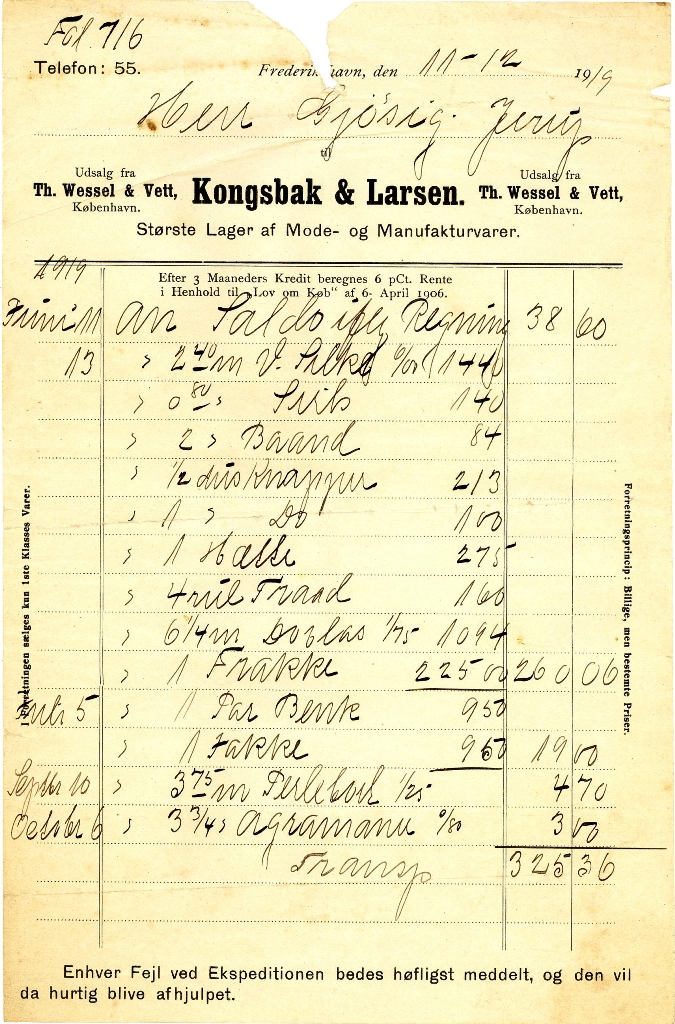 Fol. 716
Telefon: 55.
Frederikshavn, den 11-12 1919
Herr Gjøsig. Jerup
til
Udsalg fra
Th. Wessel & Vett,
København.
Kongsbak & Larsen.
Udsalg fra
Th. Wessel & Vett,
København.
Største Lager af Mode- og Manufakturvarer.
1919
Efter 3 Maaneders Kredit beregnes 6 pCt. Rente
i Henhold til „Lov om Køb“ af 6. April 1906.
Juni 11 An Saldo Regning 38 60
13 " 2 40 m V. 6/00 14 40
" 0 80 " 1 40
" 2 " Baand 84
" 1/2 dus Knapper 2 13
" 1 " Do 1 00
" 1 2 75
" 4 rul Traad 1 60
" 6 1/4 m Dovlas 1/75 10 94
" 1 Frakke 225 00 260 06
5 " 1 Par Benk 9 50
" 1 Jakke 9 50 19 00
Septbr 10 " 3 75 m 1/25 4 70
October 6 " 3 3/4 " Agramaner 0/80 3 00
Transp 325 36
I Forretningen sælges kun 1ste Klasses Varer.
Forretningsprincip: Billige, men bestemte Priser.
Enhver Fejl ved Ekspeditionen bedes høfligst meddelt, og den vil
da hurtig blive afhjulpet.